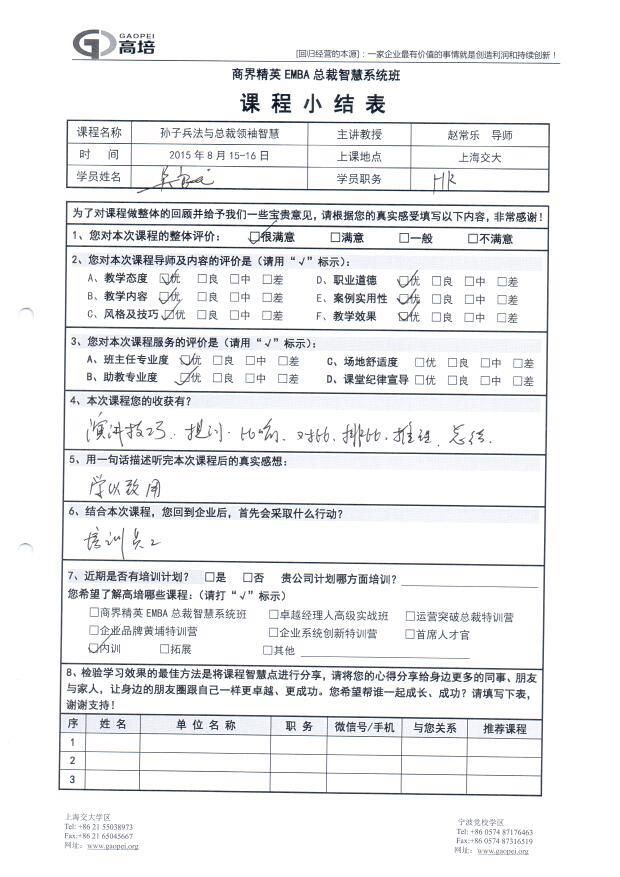 GAOPEI
高培
[回归经营的本源]：一家企业最有价值的事情就是创造利润和持续创新！
商界精英 EMBA 总裁智慧系统班
课程小结表
课程名称 孙子兵法与总裁领袖智慧 主讲教授 赵常乐 导师
时 间 2015 年 8 月 15-16 日 上课地点 上海交大
学员姓名 学员职务 HR
为了对课程做整体的回顾并给予我们一些宝贵意见，请根据您的真实感受填写以下内容，非常感谢！
1、您对本次课程的整体评价： ☑很满意 □满意 □一般 □不满意
2、您对本次课程导师及内容的评价是（请用“√”标示）：
A、教学态度 ☑优 □良 □中 □差 D、职业道德 ☑优 □良 □中 □差
B、教学内容 ☑优 □良 □中 □差 E、案例实用性 ☑优 □良 □中 □差
C、风格及技巧 ☑优 □良 □中 □差 F、教学效果 ☑优 □良 □中 □差
3、您对本次课程服务的评价是（请用“√”标示）：
A、班主任专业度 ☑优 □良 □中 □差 C、场地舒适度 □优 □良 □中 □差
B、助教专业度 ☑优 □良 □中 □差 D、课堂纪律宣导 □优 □良 □中 □差
4、本次课程您的收获有？
演讲技巧、提问、比喻、对比、排比、推理、总结.
5、用一句话描述听完本次课程后的真实感想：
学以致用
6、结合本次课程，您回到企业后，首先会采取什么行动？
培训员工
7、近期是否有培训计划？ □是 □否 贵公司计划哪方面培训？
您希望了解高培哪些课程：（请打“√”标示）
□商界精英 EMBA 总裁智慧系统班 □卓越经理人高级实战班 □运营突破总裁特训营
□企业品牌黄埔特训营 □企业系统创新特训营 □首席人才官
☑内训 □拓展 □其他
8、检验学习效果的最佳方法是将课程智慧点进行分享，请将您的心得分享给身边更多的同事、朋友
与家人，让身边的朋友圈跟自己一样更卓越、更成功。您希望帮谁一起成长、成功？请填写下表，
谢谢支持！
序 姓 名 单 位 名 称 职 务 微信号/手机 与您关系 推荐课程
1
2
3
上海交大学区 宁波党校学区
Tel: +86 21 55038973 Tel: +86 0574 87176463
Fax:+86 21 65045667 Fax:+86 0574 87316519
网址：www.gaopei.org 网址：www.gaopei.org